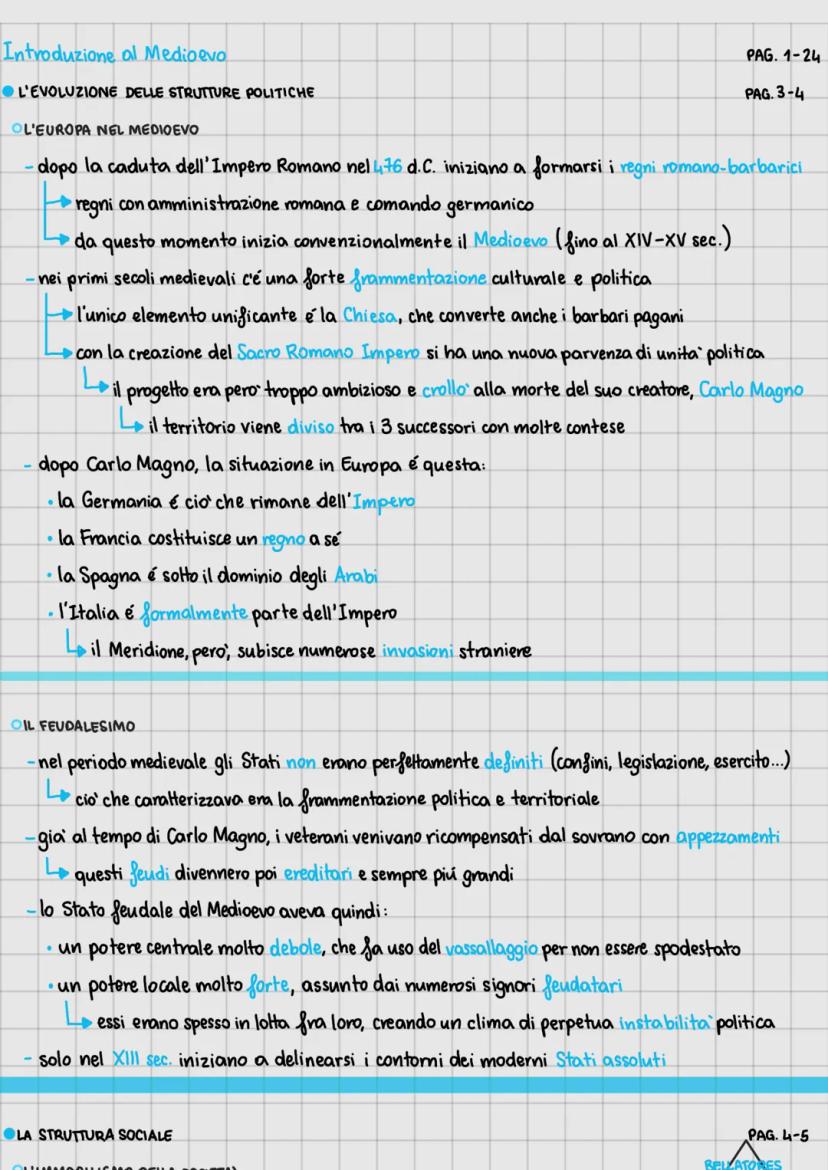 Introduzione al Medioevo PAG. 1-24
L'EVOLUZIONE DELLE STRUTTURE POLITICHE PAG. 3-4
L'EUROPA NEL MEDIOEVO
- dopo la caduta dell'Impero Romano nel 476 d.C. iniziano a formarsi i regni romano-barbarici
regni con amministrazione romana e comando germanico
da questo momento inizia convenzionalmente il Medioevo (fino al XIV-XV sec.)
- nei primi secoli medievali c'é una forte frammentazione culturale e politica
l'unico elemento unificante é la Chiesa, che converte anche i barbari pagani
con la creazione del Sacro Romano Impero si ha una nuova parvenza di unita' politica
il progetto era pero' troppo ambizioso e crollo' alla morte del suo creatore, Carlo Magno
il territorio viene diviso tra i 3 successori con molte contese
- dopo Carlo Magno, la situazione in Europa é questa:
• la Germania é cio' che rimane dell'Impero
• la Francia costituisce un regno a sé
• la Spagna é sotto il dominio degli Arabi
• l'Italia é formalmente parte dell'Impero
il Meridione, pero', subisce numerose invasioni straniere
IL FEUDALESIMO
- nel periodo medievale gli Stati non erano perfettamente definiti (confini, legislazione, esercito...)
cio' che caratterizzava era la frammentazione politica e territoriale
- gia' al tempo di Carlo Magno, i veterani venivano ricompensati dal sovrano con appezzamenti
questi feudi divennero poi ereditari e sempre piú grandi
- lo Stato feudale del Medioevo aveva quindi:
• un potere centrale molto debole, che fa uso del vassallaggio per non essere spodestato
• un potere locale molto forte, assunto dai numerosi signori feudatari
essi erano spesso in lotta fra loro, creando un clima di perpetua instabilita' politica
- solo nel XIII sec. iniziano a delinearsi i contorni dei moderni Stati assoluti
LA STRUTTURA SOCIALE PAG. 4-5
BELLATORES